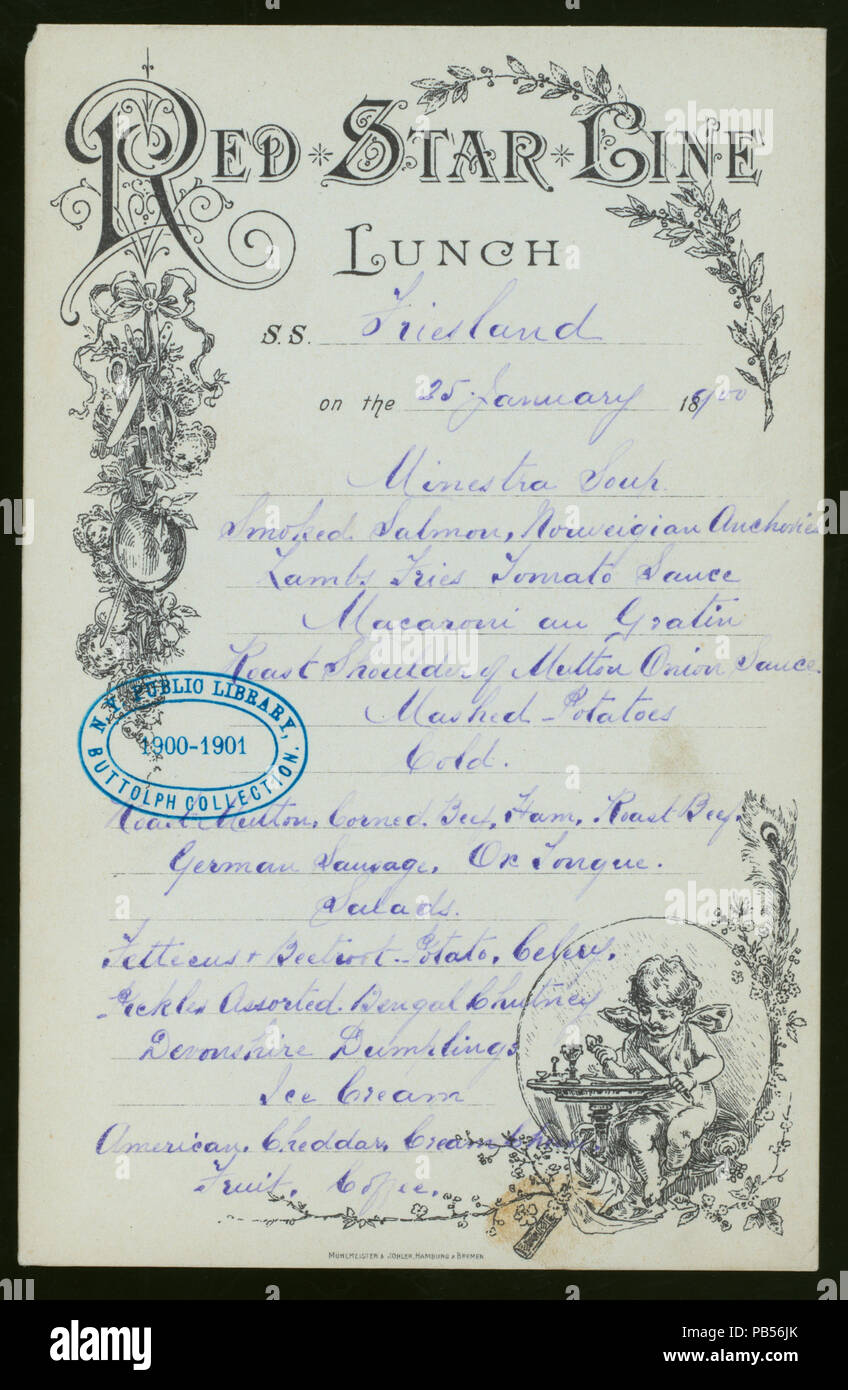 RED * STAR * LINE
LUNCH
S.S. Friesland
on the 25 January 18900
Minestra Soup.
Smoked Salmon, Norweigian Anchovies
Lambs Fries Tomato Sauce
Macaroni au Gratin
Roast Shoulder of Mutton Onion Sauce.
Mashed Potatoes
Cold.
Roast Mutton, Corned Beef, Ham, Roast Beef.
German Sausage, Ox Tongue.
Salads.
Fetticus & Beetroot - Potato, Celery,
Pickles Assorted. Bengal Chutney
Devonshire Dumplings
Ice Cream
American, Cheddar, Cream Cheese,
Fruit, Coffee.
N.Y. PUBLIC LIBRARY,
1900-1901
BUTTOLPH COLLECTION.
MÜHLMEISTER & JOHLER, HAMBURG & BREMEN
alamy
Image ID: PB56JK
www.alamy.com